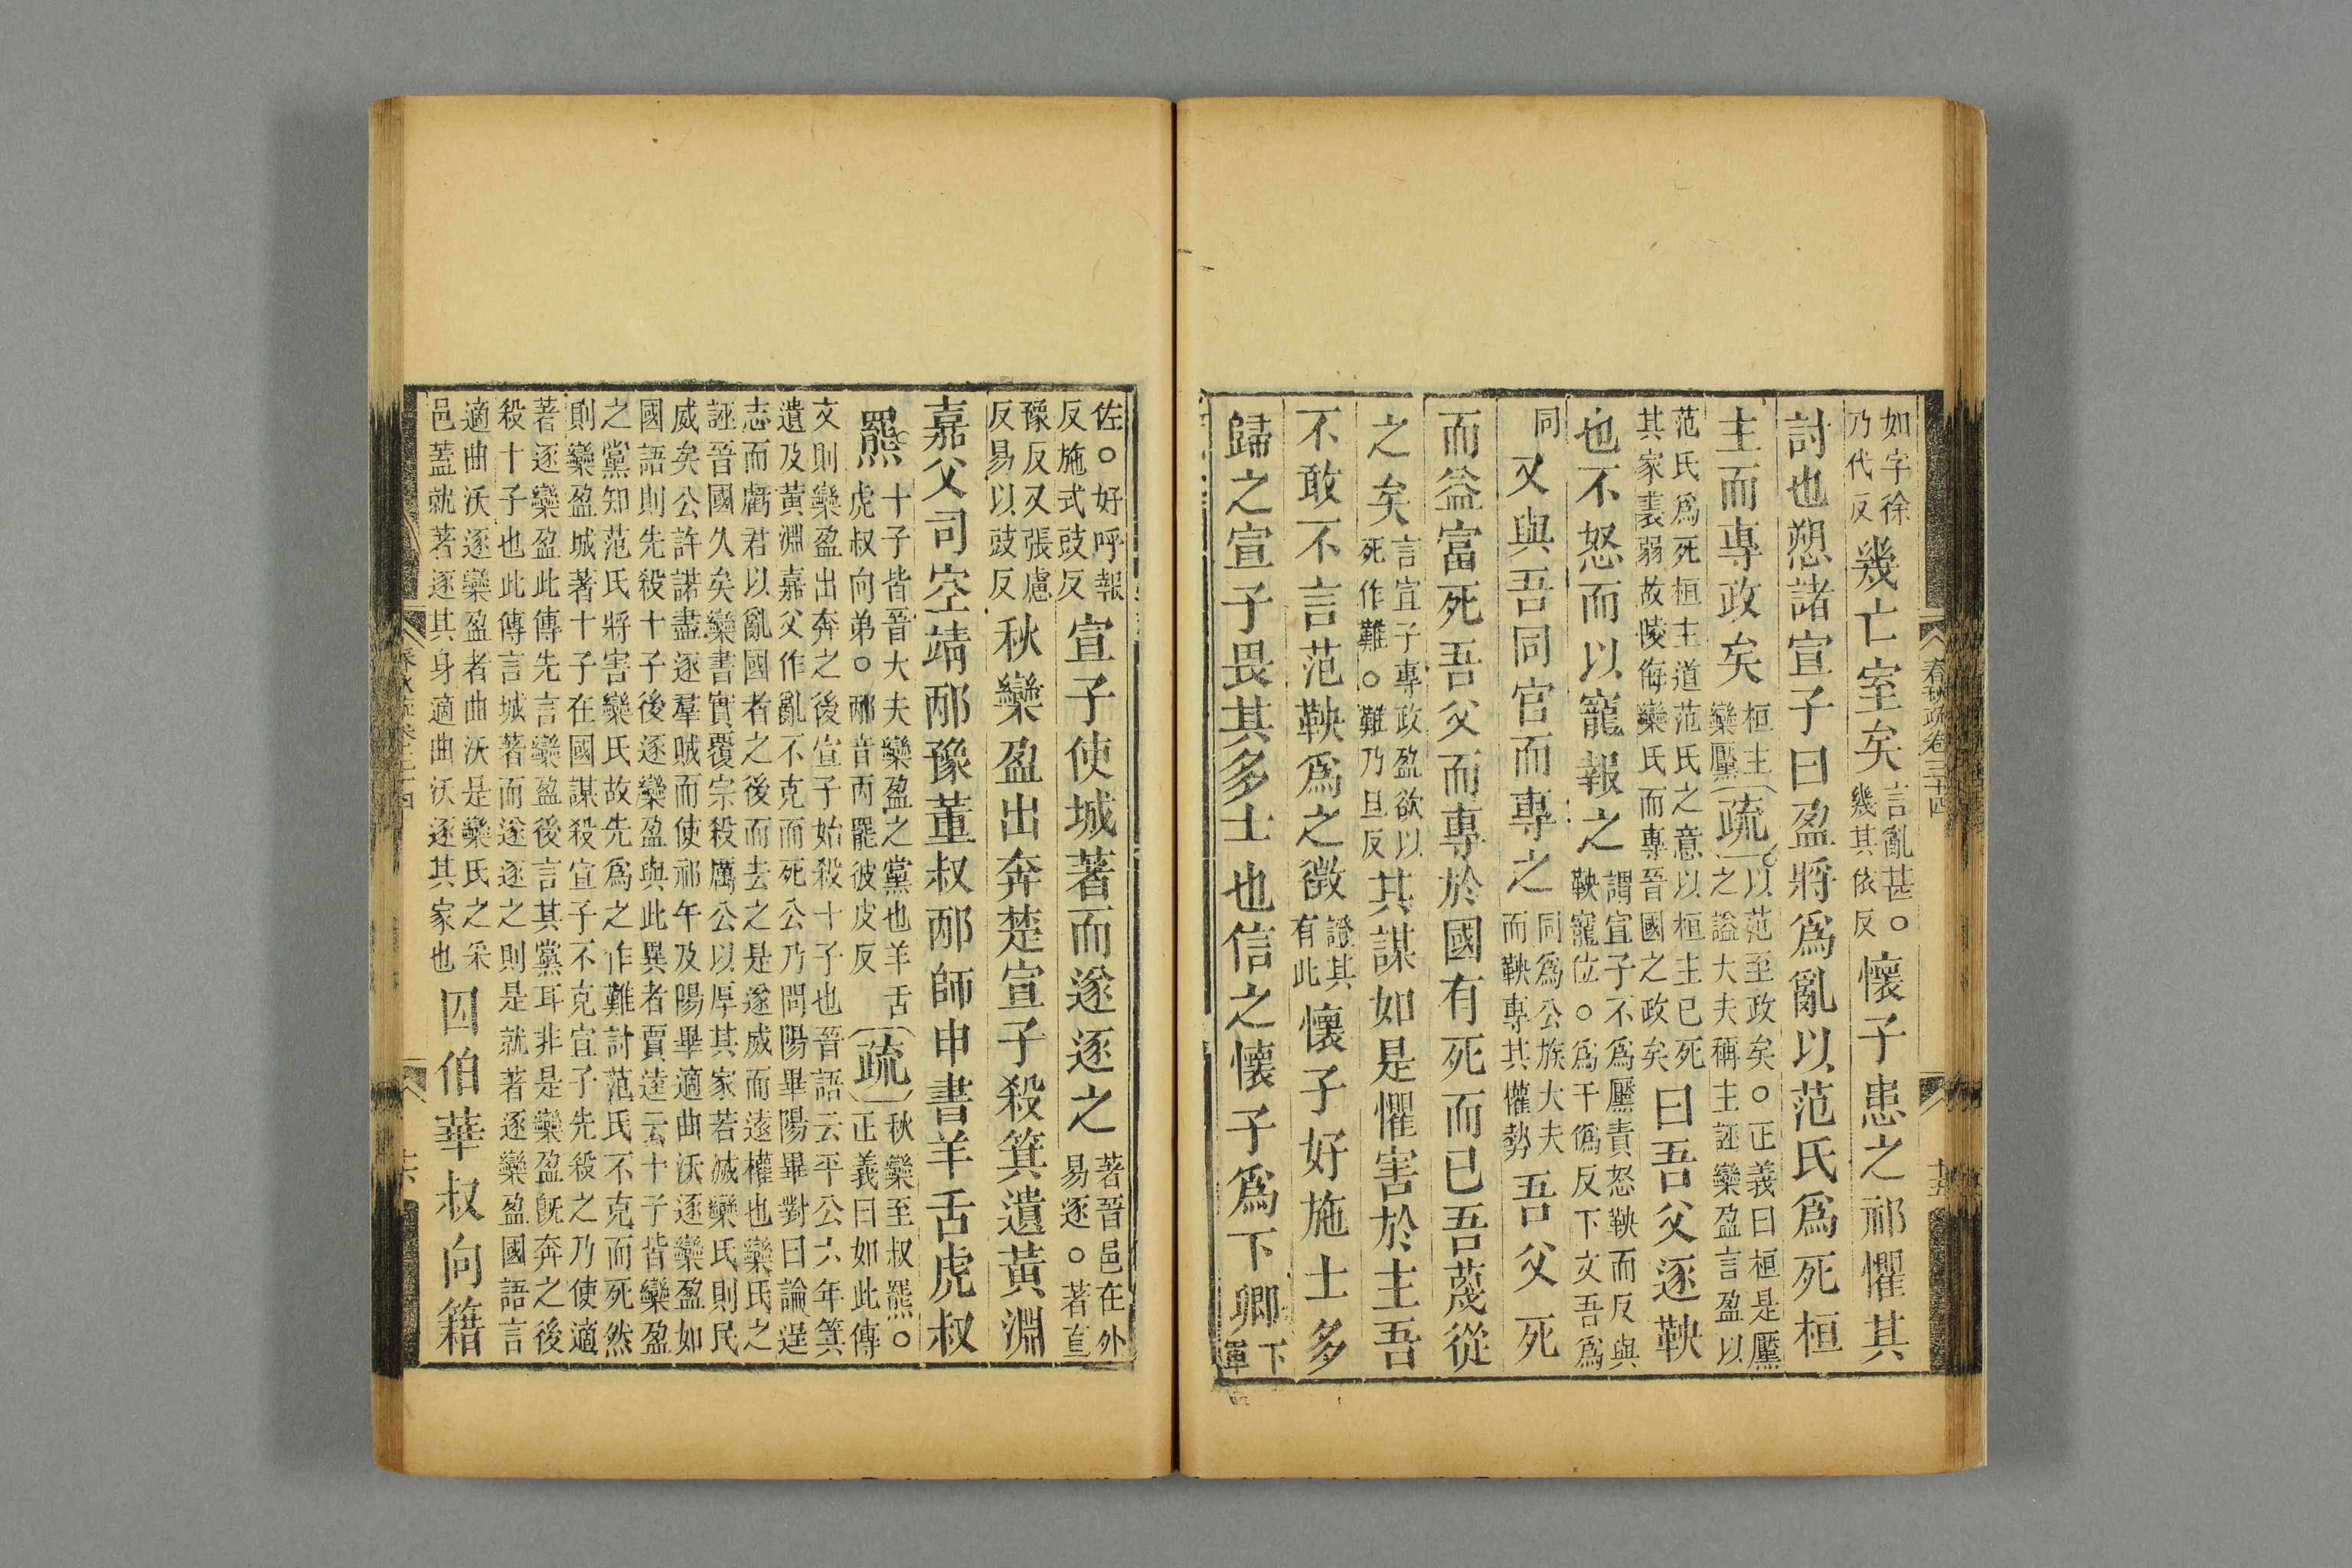 如字徐乃代反幾亡室矣言亂甚○幾其依反懷子患之祁懼其
討也愬諸宣子曰盈將爲亂以范氏爲死桓
主而專政矣桓主欒黶疏以范至政矣○正義曰桓是黶之謚大夫稱主誣欒盈言盈以
范氏爲死桓主道范氏之意以桓主已死其家衰弱故陵侮欒氏而專晉國之政矣曰吾父逐鞅
也不怒而以寵報之謂宣子不爲黶責怒鞅而反與鞅寵位○爲于僞反下文吾爲
同又與吾同官而專之同爲公族大夫而鞅專其權勢吾父死
而益富死吾父而專於國有死而已吾蔑從
之矣言宣子專政盈欲以死作難○難乃旦反其謀如是懼害於主吾
不敢不言范鞅爲之徵證其有此懷子好施士多
歸之宣子畏其多士也信之懷子爲下卿下軍
春秋疏卷三十四
十五
佐○好呼報反施式豉反宣子使城著而遂逐之著晉邑在外易逐○著直
豫反又張慮反易以豉反秋欒盈出奔楚宣子殺箕遺黃淵
嘉父司空靖邴豫董叔邴師申書羊舌虎叔
羆十子皆晉大夫欒盈之黨也羊舌虎叔向弟○邴音丙羆彼皮反疏秋欒至叔羆○正義曰如此傳
文則欒盈出奔之後宣子始殺十子也晉語云平公六年箕
遺及黃淵嘉父作亂不克而死公乃問陽畢陽畢對曰論逞
志而虧君以亂國者之後而去之是遂威而遠權也欒氏之
誣晉國久矣欒書實覆宗殺厲公以厚其家若滅欒氏則民
威矣公許諾盡逐羣賊而使祁午及陽畢適曲沃逐欒盈如
國語則先殺十子後逐欒盈與此異者賈逵云十子皆欒盈
之黨知范氏將害欒氏故先爲之作難討范氏不克而死然
則欒盈城著十子在國謀殺宣子不克宣子先殺之乃使適
著逐欒盈此傳先言欒盈後言其黨耳非是欒盈旣奔之後
殺十子也此傳言城著而遂逐之則是就著逐欒盈國語言
適曲沃逐欒盈者曲沃是欒氏之采邑蓋就著逐其身適曲沃逐其家也囚伯華叔向籍